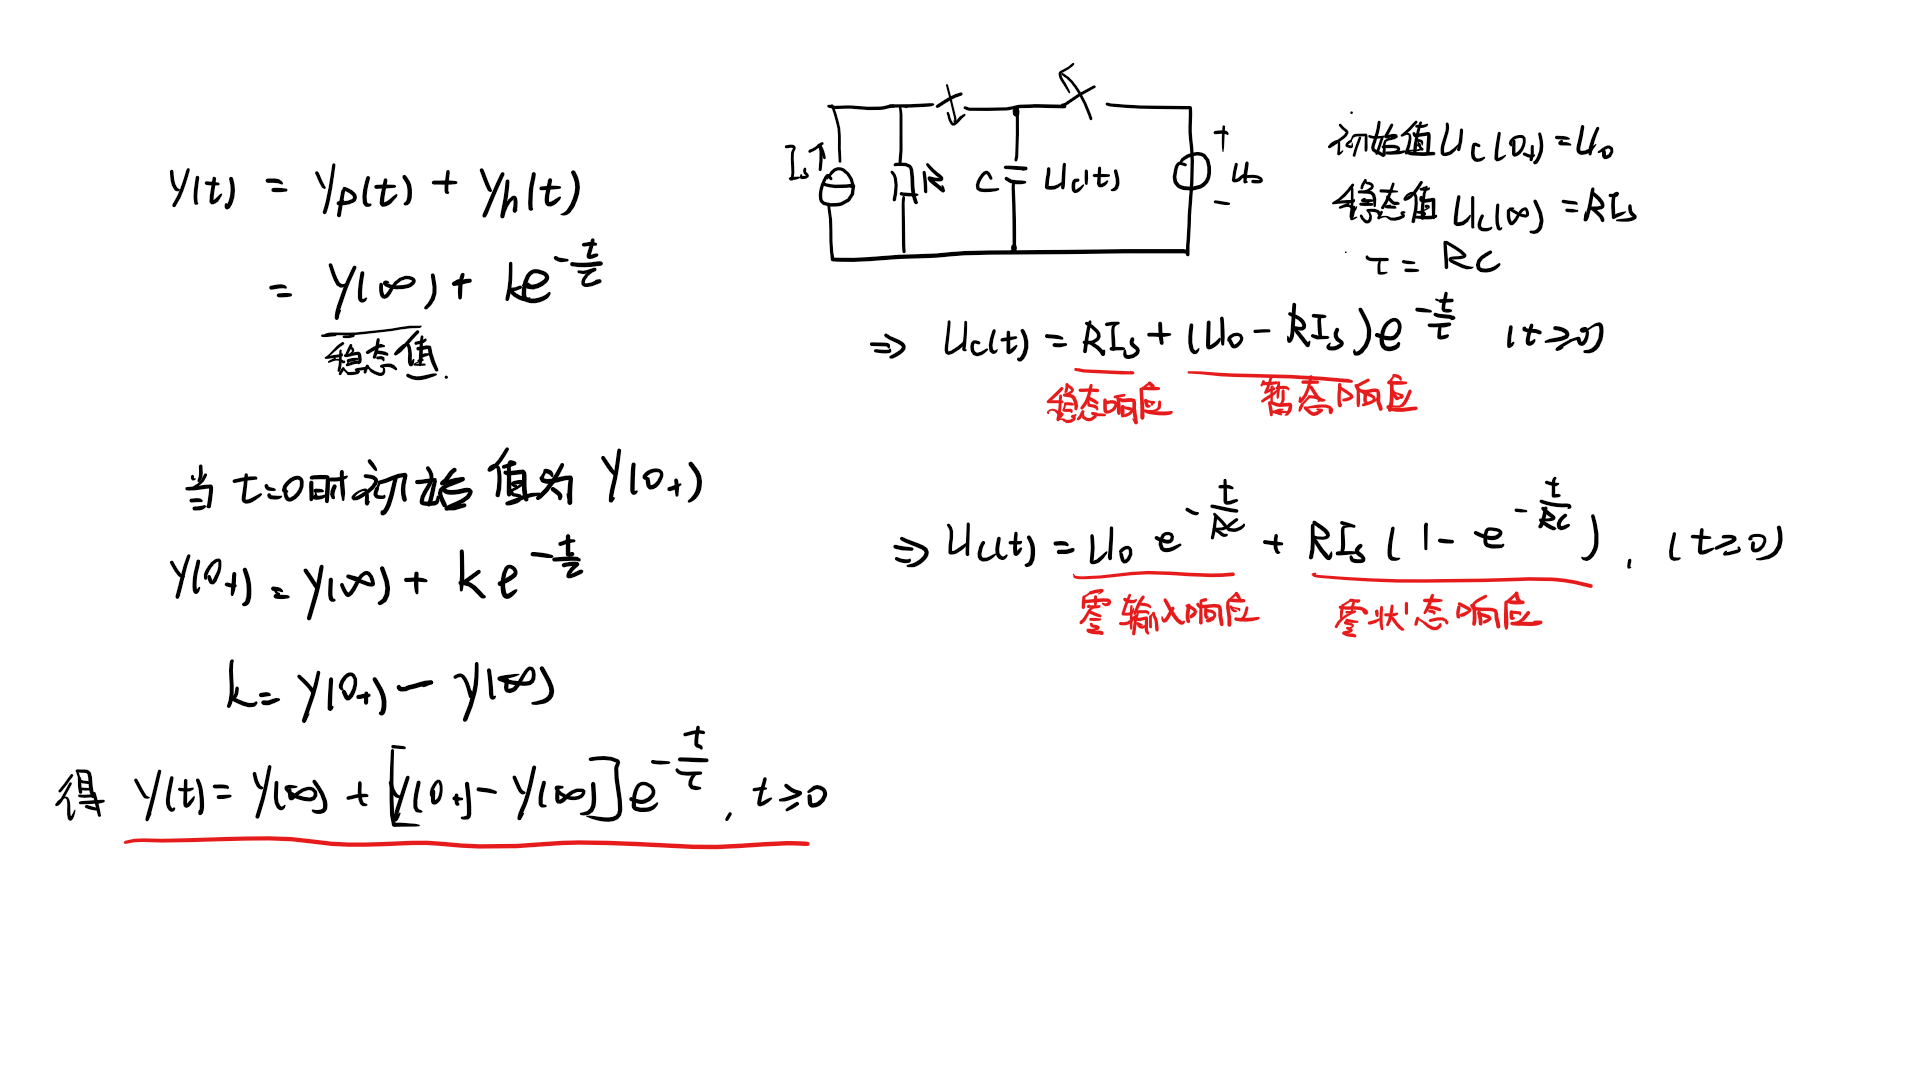 y(t) = yp(t) + yh(t)
= y(∞) + ke^{-t/τ}
稳态值.
当 t=0时初始值为 y(0+)
y(0+) = y(∞) + k e^{-t/τ}
k = y(0+) - y(∞)
得 y(t) = y(∞) + [y(0+) - y(∞)] e^{-t/τ}, t≥0
Is R C Uc(t) + U₀ -
初始值 Uc(0+) = U₀
稳态值 Uc(∞) = RIs
τ = RC
⇒ Uc(t) = RIs + (U₀ - RIs) e^{-t/τ} (t≥0)
稳态响应 暂态响应
⇒ Uc(t) = U₀ e^{-t/RC} + RIs (1 - e^{-t/RC}), (t≥0)
零输入响应 零状态响应